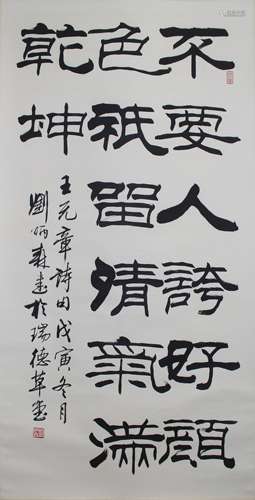 不要人誇好顏
色祇留清氣滿
乾坤
王元章詩句戊寅冬月
劉炳森書於瑞德草堂